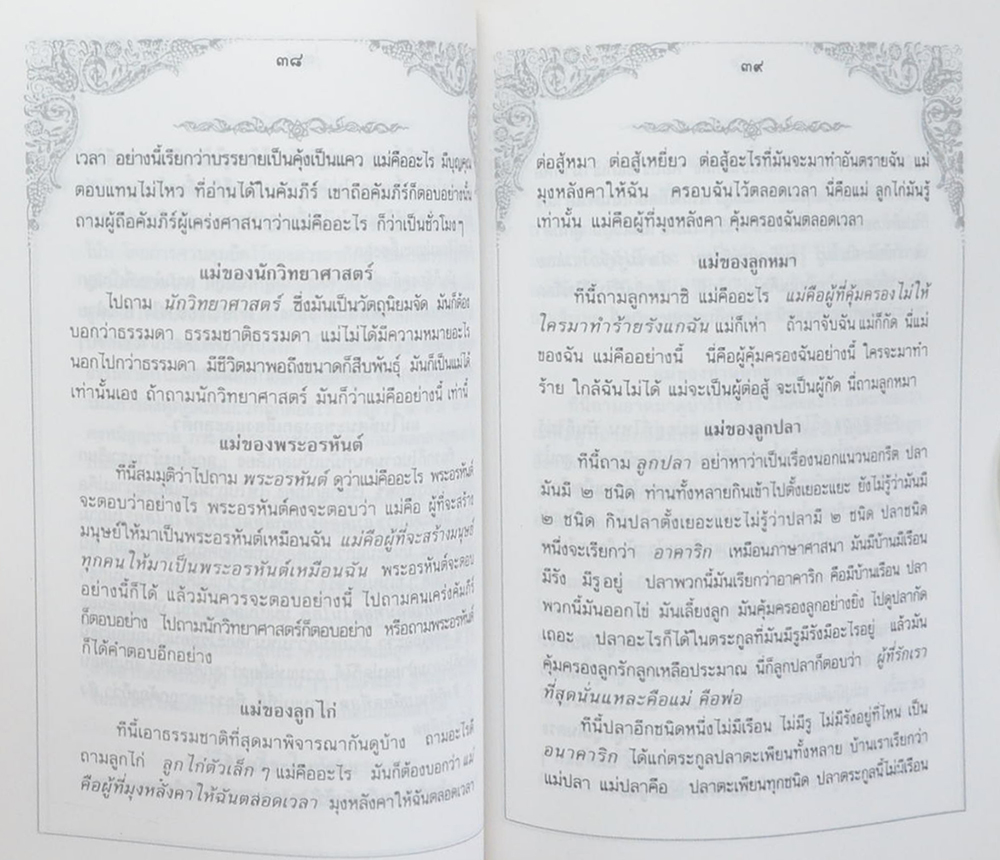 ๓๘
เวลา อย่างนี้เรียกว่าบรรยายเป็นคุ้งเป็นแคว แม่คืออะไร มีบุญคุณ
ตอบแทนไม่ไหว ที่อ่านได้ในคัมภีร์ เขาถือคัมภีร์ก็ตอบอย่างนั้น
ถามผู้ถือคัมภีร์ผู้เคร่งศาสนาว่าแม่คืออะไร ก็ว่าเป็นชั่วโมงๆ
แม่ของนักวิทยาศาสตร์
ไปถาม นักวิทยาศาสตร์ ซึ่งมันเป็นวัตถุนิยมจัด มันก็ต้อง
บอกว่าธรรมดา ธรรมชาติธรรมดา แม่ไม่ได้มีความหมายอะไร
นอกไปกว่าธรรมดา มีชีวิตมาพอถึงขนาดก็สืบพันธุ์ มันก็เป็นแม่ได้
เท่านั้นเอง ถ้าถามนักวิทยาศาสตร์ มันก็ว่าแม่คืออย่างนี้ เท่านี้
แม่ของพระอรหันต์
ทีนี้สมมุติว่าไปถาม พระอรหันต์ ดูว่าแม่คืออะไร พระอรหันต์
จะตอบว่าอย่างไร พระอรหันต์คงจะตอบว่า แม่คือ ผู้ที่จะสร้าง
มนุษย์ให้มาเป็นพระอรหันต์เหมือนฉัน แม่คือผู้ที่จะสร้างมนุษย์
ทุกคนให้มาเป็นพระอรหันต์เหมือนฉัน พระอรหันต์จะตอบ
อย่างนี้ก็ได้ แล้วมันควรจะตอบอย่างนี้ ไปถามคนเคร่งคัมภีร์
ก็ตอบอย่าง ไปถามนักวิทยาศาสตร์ก็ตอบอย่าง หรือถามพระอรหันต์
ก็ได้คำตอบอีกอย่าง
แม่ของลูกไก่
ทีนี้เอาธรรมชาติที่สุดมาพิจารณากันดูบ้าง ถามอะไรดี
ถามลูกไก่ ลูกไก่ตัวเล็กๆ แม่คืออะไร มันก็ต้องบอกว่า แม่
คือผู้ที่มุงหลังคาให้ฉันตลอดเวลา มุงหลังคาให้ฉันตลอดเวลา
๓๙
ต่อสู้หมา ต่อสู้เหยี่ยว ต่อสู้อะไรที่มันจะมาทำอันตรายฉัน แม่
มุงหลังคาให้ฉัน ครอบฉันไว้ตลอดเวลา นี่คือแม่ ลูกไก่มันรู้
เท่านั้น แม่คือผู้ที่มุงหลังคา คุ้มครองฉันตลอดเวลา
แม่ของลูกหมา
ทีนี้ถามลูกหมาซิ แม่คืออะไร แม่คือผู้ที่คุ้มครองไม่ให้
ใครมาทำร้ายรังแกฉัน แม่ก็เห่า ถ้ามาจับฉัน แม่ก็กัด นี่แม่
ของฉัน แม่คืออย่างนี้ นี่คือผู้คุ้มครองฉันอย่างนี้ ใครจะมาทำ
ร้าย ใกล้ฉันไม่ได้ แม่จะเป็นผู้ต่อสู้ จะเป็นผู้กัด นี่ถามลูกหมา
แม่ของลูกปลา
ทีนี้ถาม ลูกปลา อย่าหาว่าเป็นเรื่องนอกแนวนอกรีต ปลา
มันมี ๒ ชนิด ท่านทั้งหลายกินเข้าไปตั้งเยอะแยะ ยังไม่รู้ว่ามันมี
๒ ชนิด กินปลาตั้งเยอะแยะไม่รู้ว่าปลามี ๒ ชนิด ปลาชนิด
หนึ่งจะเรียกว่า อาคาริก เหมือนภาษาศาสนา มันมีบ้านมีเรือน
มีรัง มีรูอยู่ ปลาพวกนี้มันเรียกว่าอาคาริก คือมีบ้านเรือน ปลา
พวกนี้มันออกไข่ มันเลี้ยงลูก มันคุ้มครองลูกอย่างยิ่ง ไปดูปลากัด
เถอะ ปลาอะไรก็ได้ในตระกูลที่มันมีรูมีรังมีอะไรอยู่ แล้วมัน
คุ้มครองลูกรักลูกเหลือประมาณ นี่ก็ลูกปลาก็ตอบว่า ผู้ที่รักเรา
ที่สุดนั่นแหละคือแม่ คือพ่อ
ทีนี้ปลาอีกชนิดหนึ่งไม่มีเรือน ไม่มีรู ไม่มีรังอยู่ที่ไหน เป็น
อนาคาริก ได้แก่ตระกูลปลาตะเพียนทั้งหลาย บ้านเราเรียกว่า
แม่ปลา แม่ปลาคือ ปลาตะเพียนทุกชนิด ปลาตระกูลนี้ไม่มีเรือน